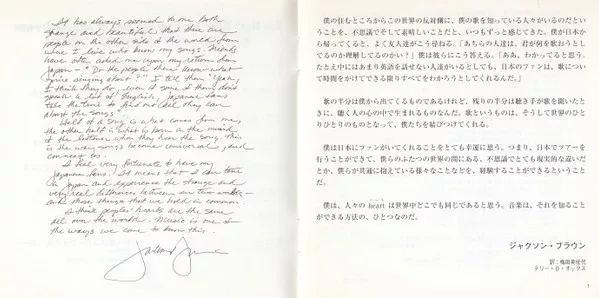 It has always seemed to me both
strange and beautiful that there are
people on the other side of the world from
where I live who know my songs. Friends
have often asked me upon my return from
Japan - "Do the people there know what
you're singing about?" I tell them "Yeah,
I think they do, even if some of them don't
speak a lot of English, Japanese fans
take the time to find out all they can
about the songs."
Half of a song is what comes from me,
the other half is what is born in the mind
of the listener when they hear the song. This
is the way songs become universal, and
connect us.
I feel very fortunate to have my
Japanese fans. It means that I can tour
in Japan and experience the strange and
very real differences between our two worlds -
and those things that we hold in common.
I think peoples' hearts are the same
all over the world. Music is one of
the ways we come to know this.
僕の住むところからこの世界の反対側に、僕の歌を知っている人々がいるのだとい
うことを、不思議でそして素晴しいことだと、いつもずっと感じてきた。僕が日本か
ら帰ってくると、よく友人達がこう尋ねる。「あちらの人達は、君が何を歌おうとし
てるのか理解してるのかい?」僕は彼らにこう答える。「ああ、わかってると思う。
たとえ中にはあまり英語を話せない人達がいるとしても、日本のファンは、歌につい
て時間をかけてできる限りすべてをわかろうとしてくれるんだ。」
歌の半分は僕から出てくるものであるけれど、残りの半分は聴き手が歌を聞いたと
きに、聴く人の心の中で生まれるものなんだ。歌というものは、そうして世界のひと
りひとりのものとなって、僕たちを結びつけてくれる。
僕は日本にファンがいてくれることをとても幸運に思う。つまり、日本でツアーを
行うことができて、僕らのふたつの世界の間にある、不思議でとても現実的な違いだ
とか、僕らが共通に抱えている様々なことなどを、経験することができるということ
だ。
僕は、人々の heart は世界中どこでも同じであると思う。音楽は、それを知ること
ができる方法の、ひとつなのだ。
ジャクソン・ブラウン
テリー・D・オックス
1